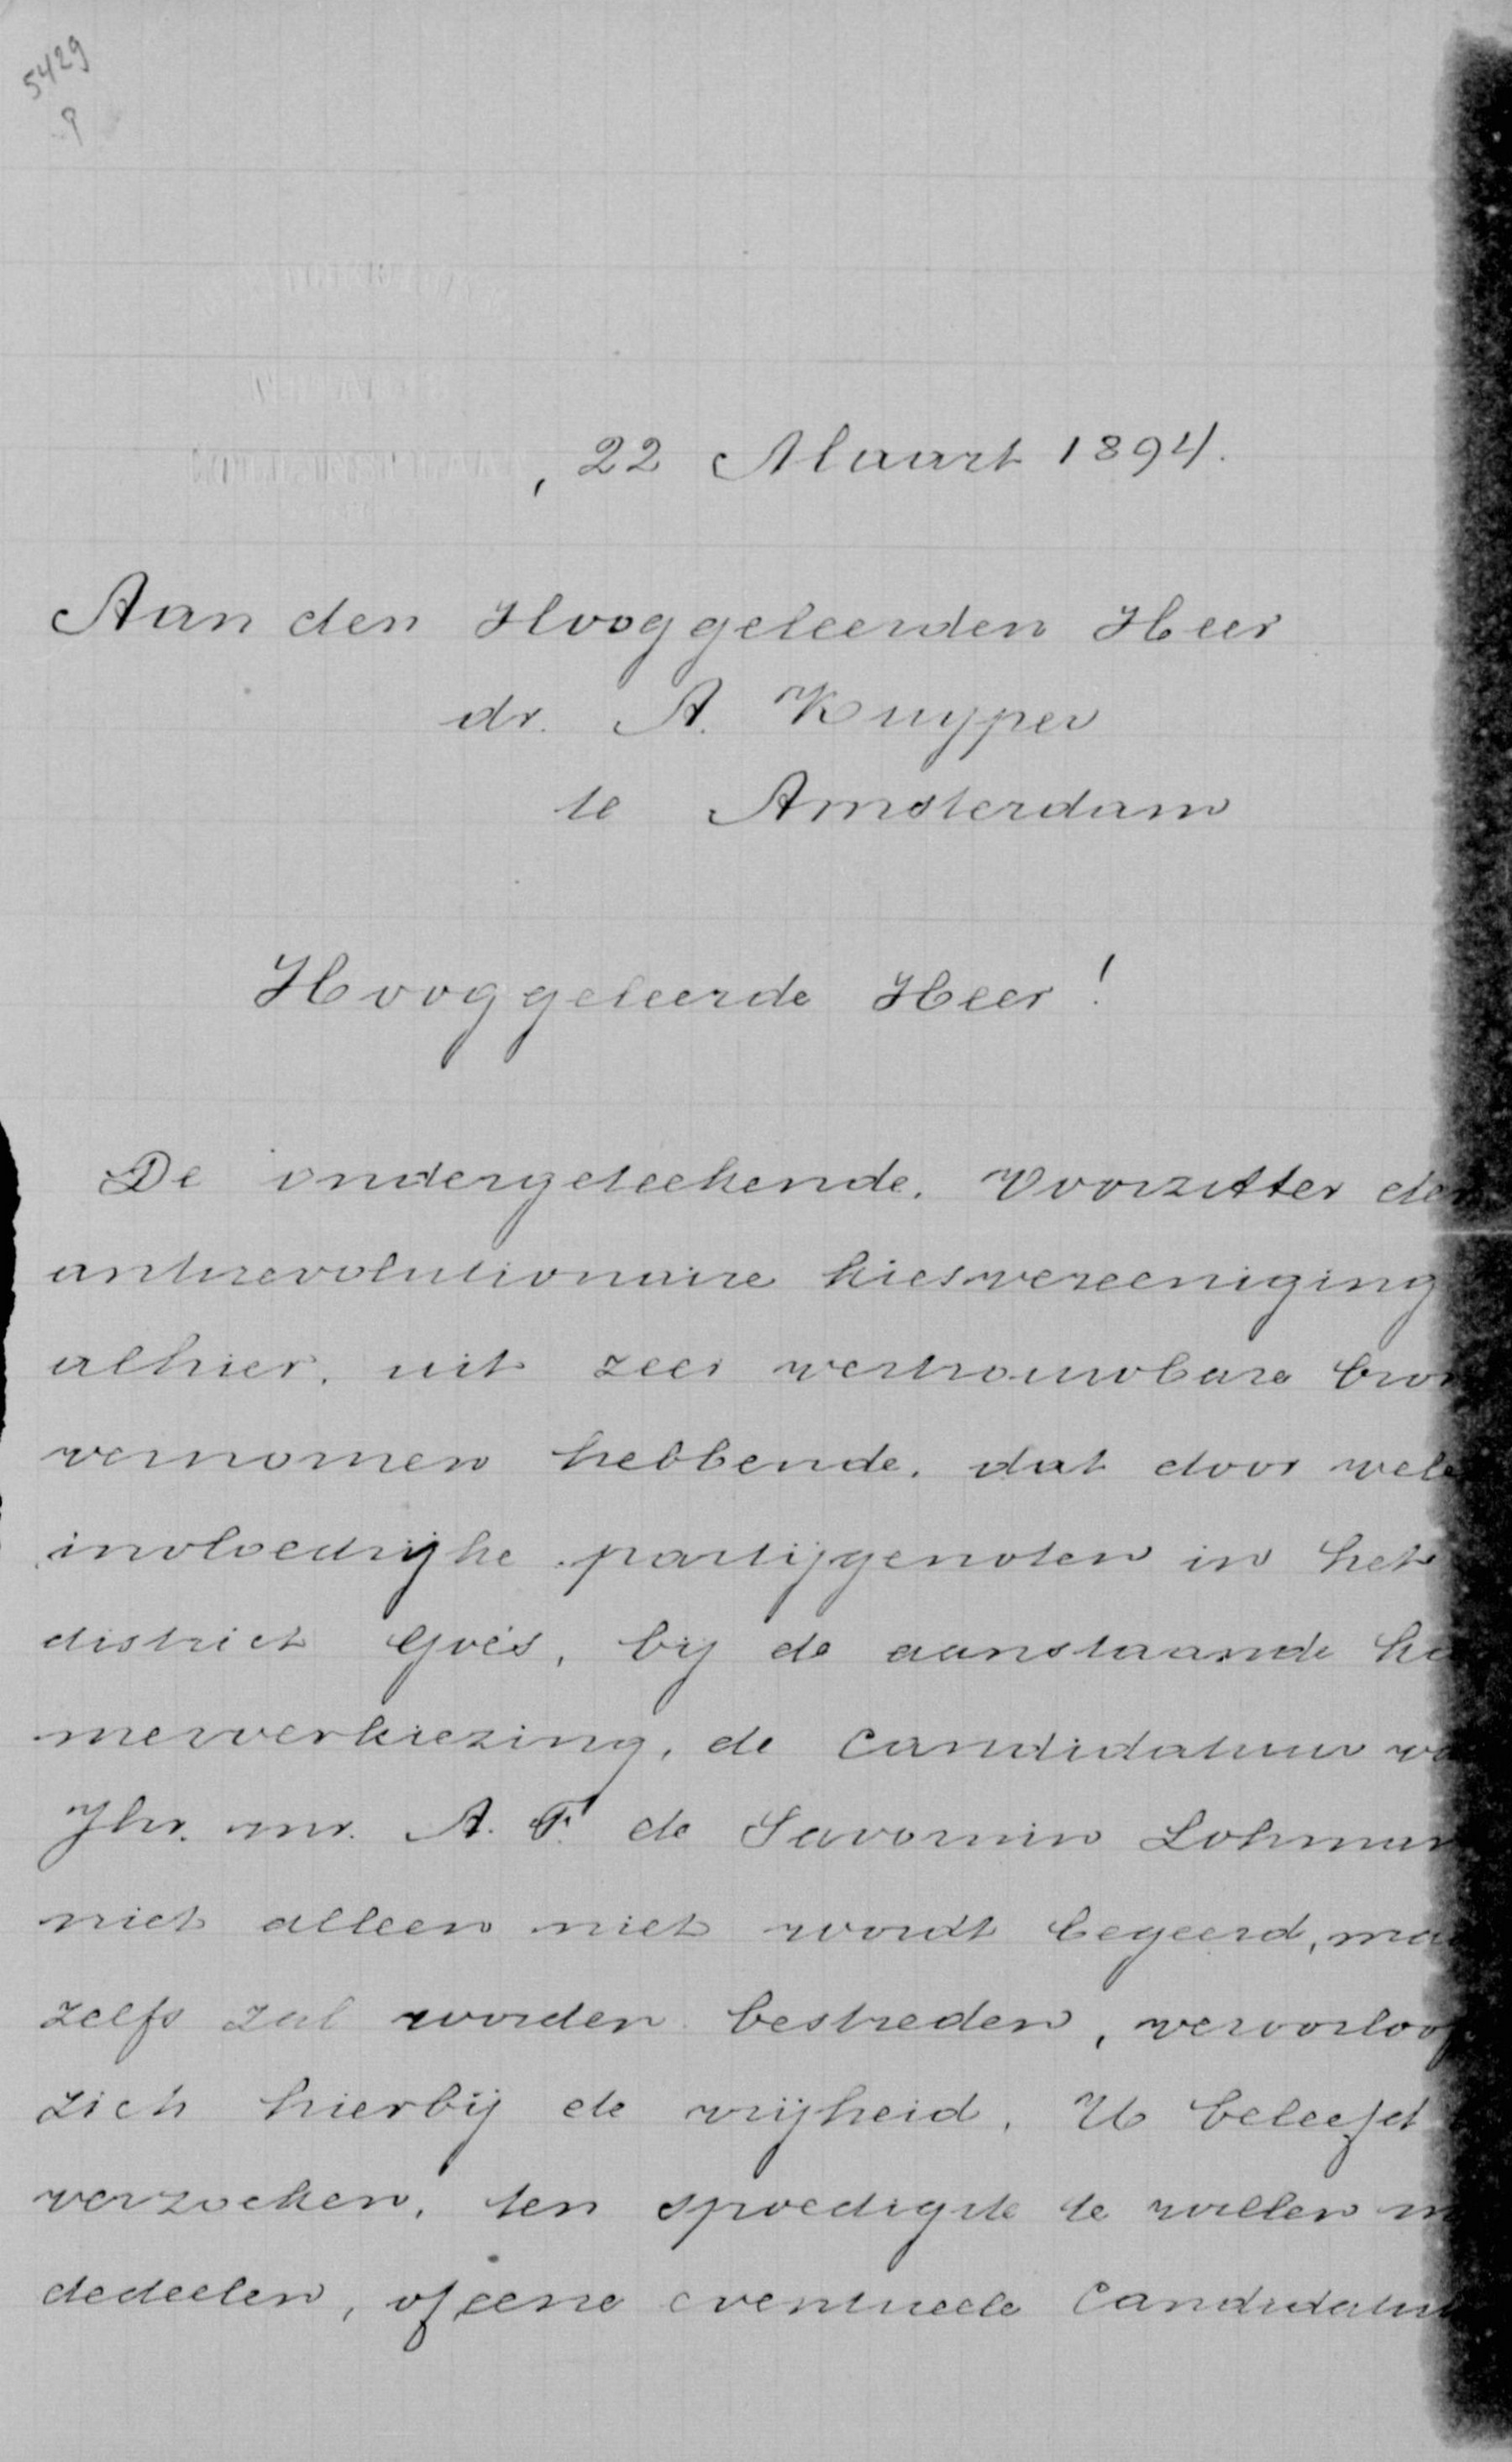 5429
, 22 Maart 1894.
Aan den Hooggeleerden Heer
dr. A. Kuyper
te Amsterdam
Hooggeleerde Heer!
De ondergeteekende, Voorzitter der
antirevolutionaire kiesvereeniging
alhier, uit zeer vertrouwbare bron
vernomen hebbende, dat door vele
invloedrijke partijgenoten in het
district Goes, bij de aanstaande ka
merverkiezing, de candidatuur va
Jhr. mr. A. F. de Savornin Lohman
niet alleen niet wordt begeerd, maa
zelfs zal worden bestreden, veroorloof
zich hierbij de vrijheid, U beleefd
verzoeken, ten spoedigste te willen m
dedeelen, of eene eventueele candidatuu